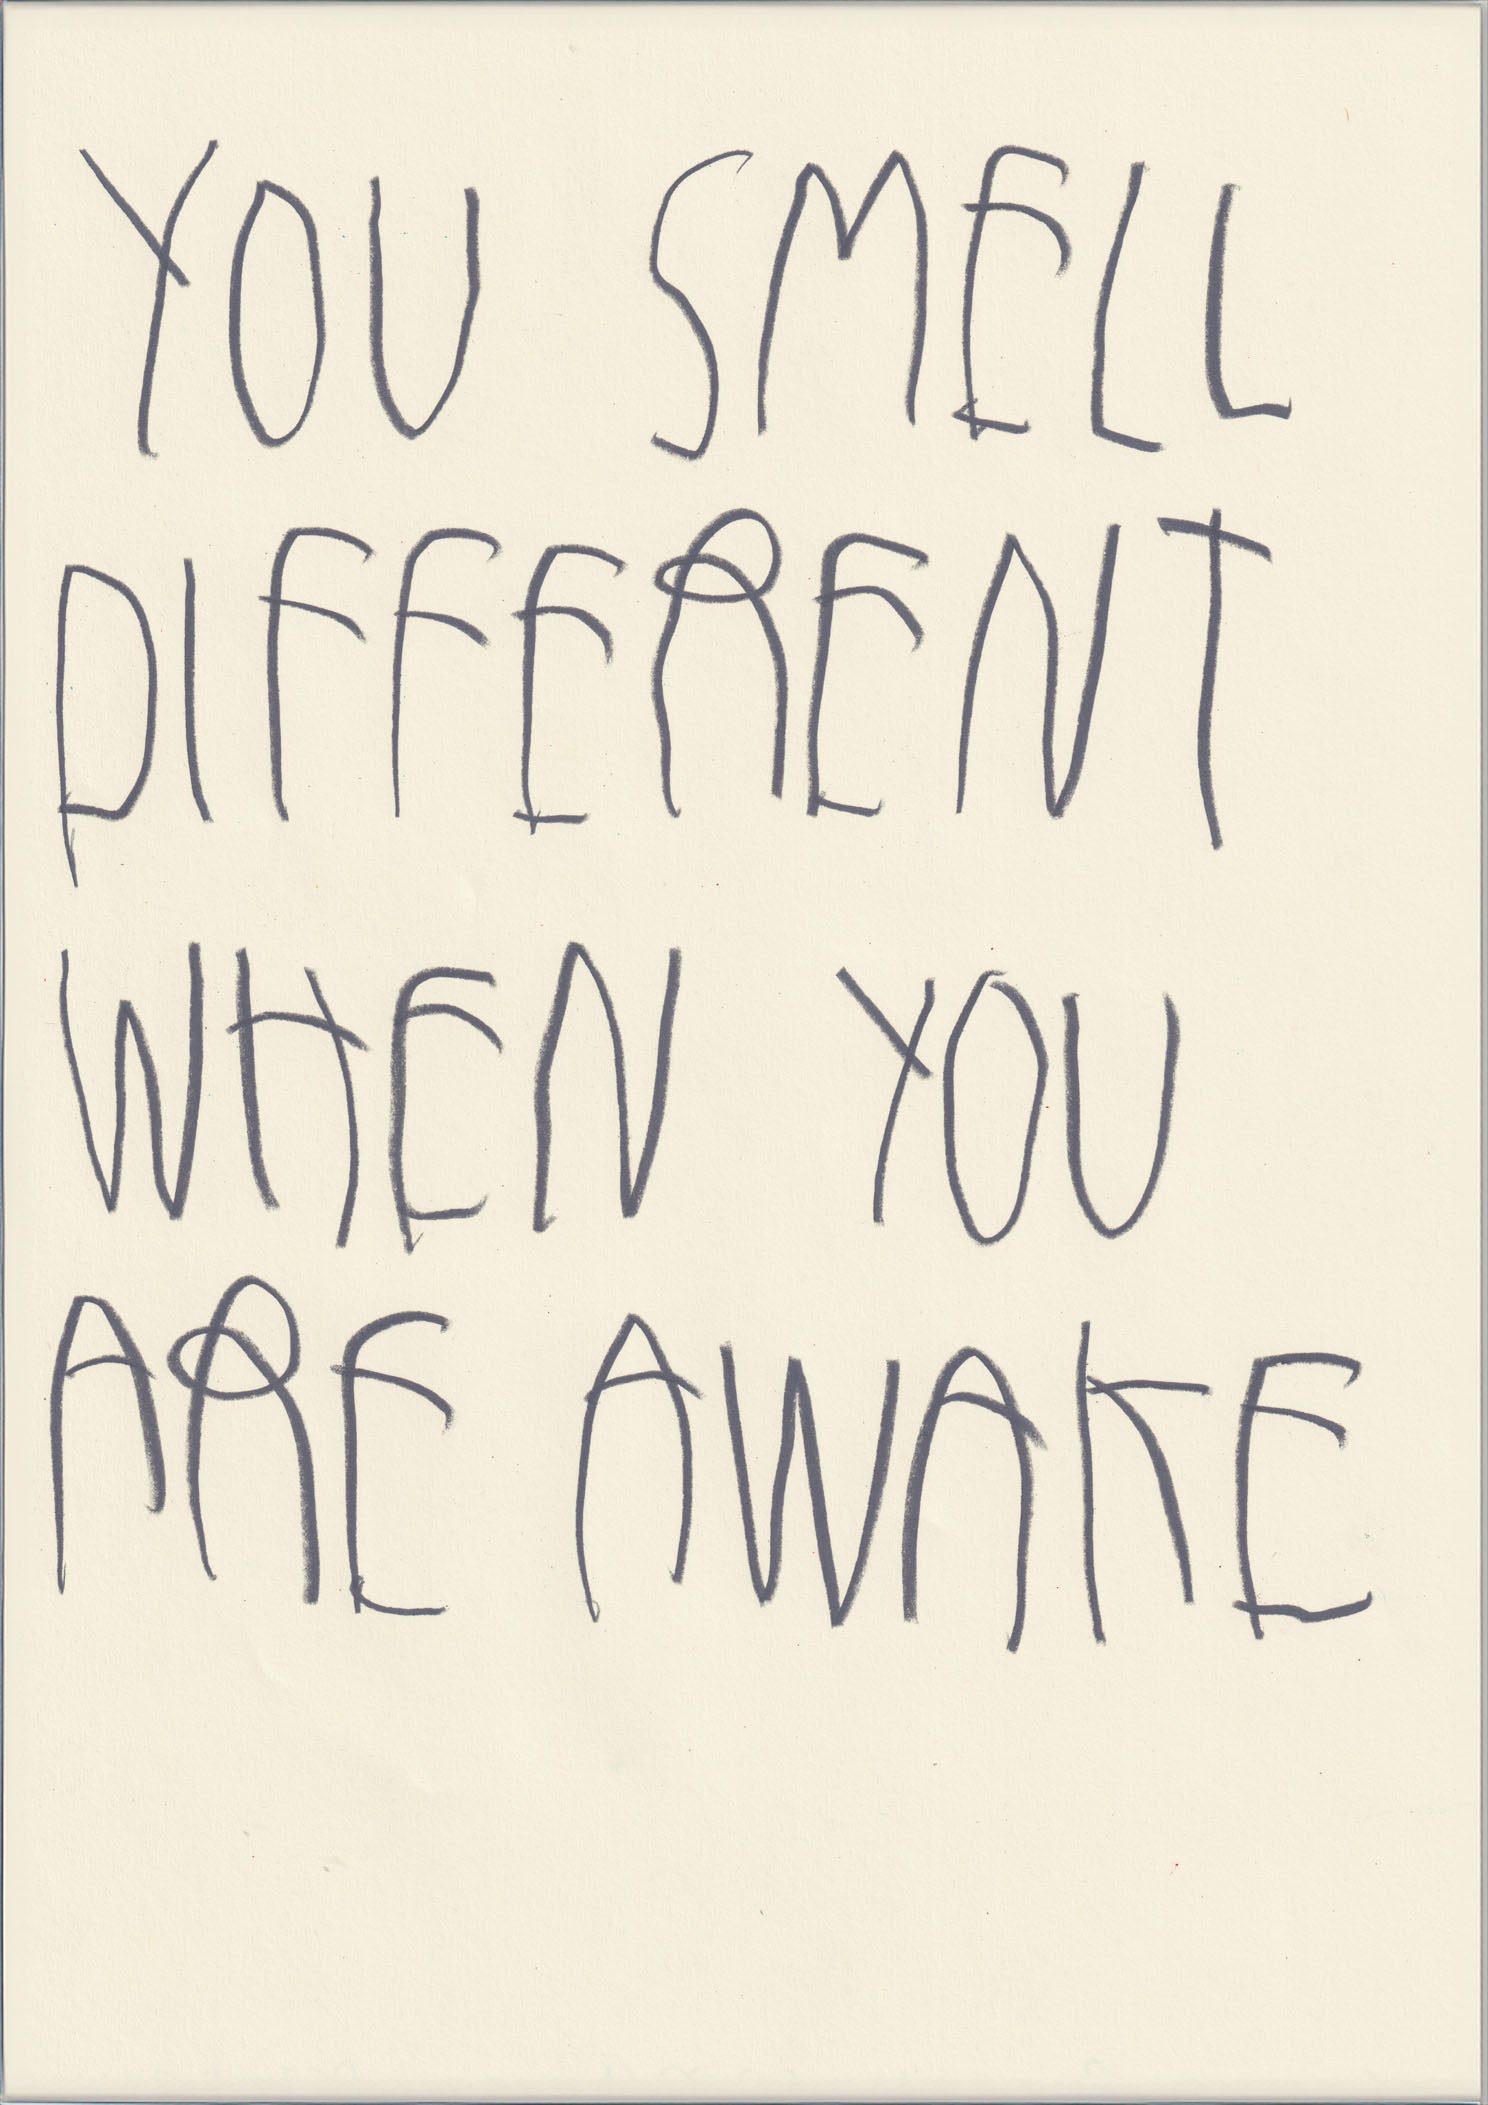 YOU SMELL
DIFFERENT
WHEN YOU
ARE AWAKE